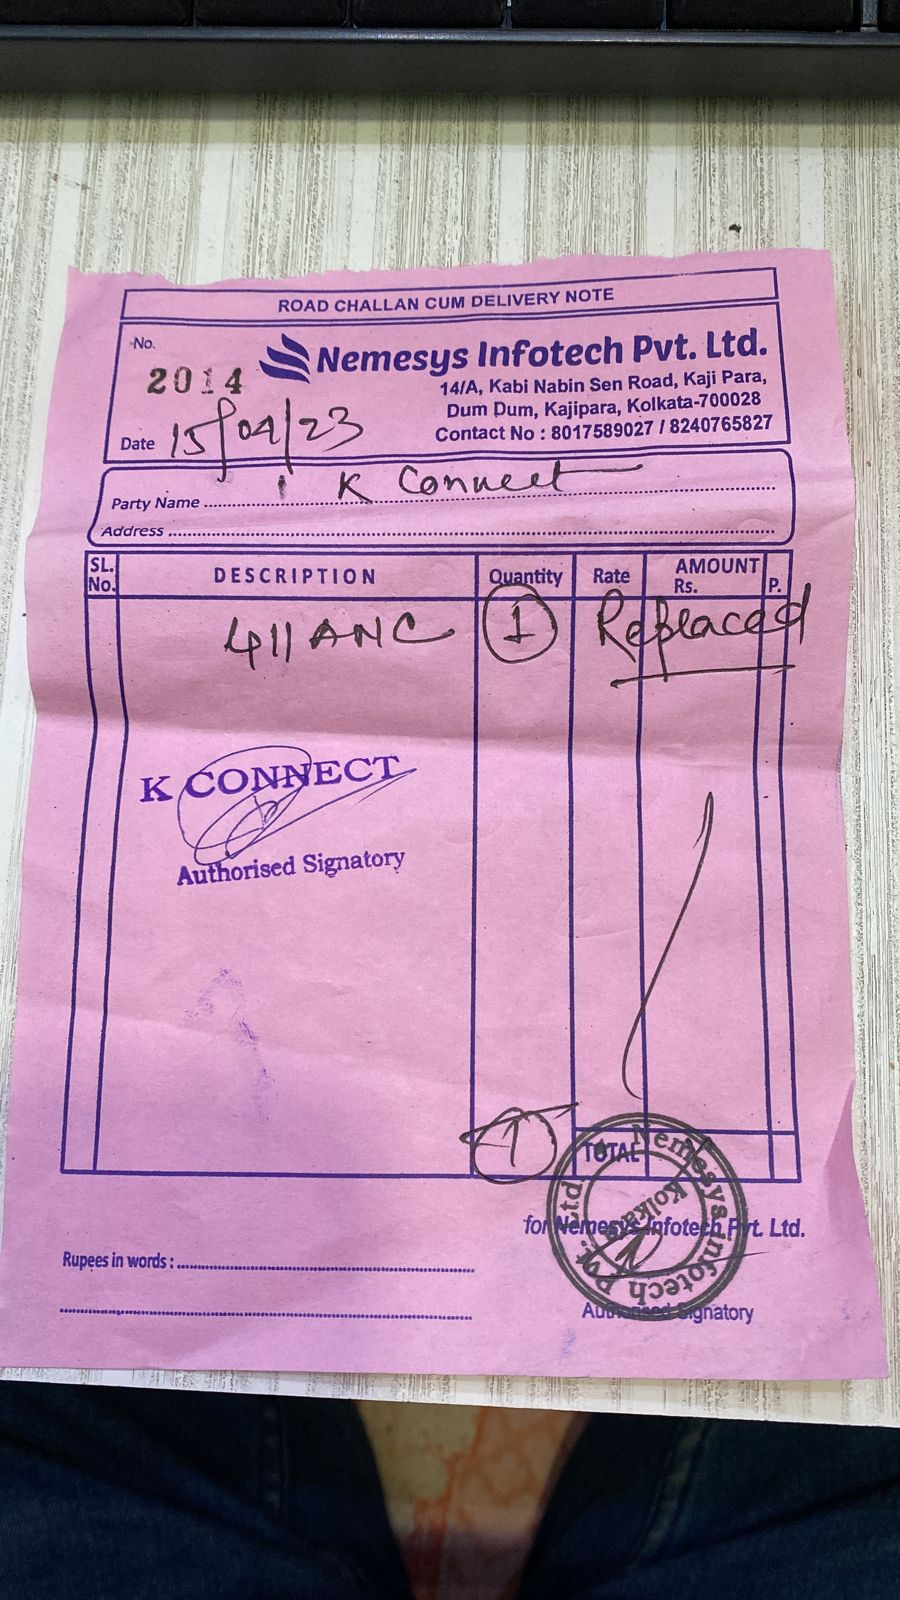 ROAD CHALLAN CUM DELIVERY NOTE
No.
2014
Nemesys Infotech Pvt. Ltd.
14/A, Kabi Nabin Sen Road, Kaji Para,
Dum Dum, Kajipara, Kolkata-700028
Contact No : 8017589027 / 8240765827
Date 15/04/23
Party Name K Connect
Address
SL. No. DESCRIPTION Quantity Rate AMOUNT Rs. P.
411 ANC 1 Replaced
K CONNECT
Authorised Signatory
1 TOTAL
for Nemesys Infotech Pvt. Ltd.
Nemesys Infotech Pvt. Ltd.
Kolkata
Rupees in words :
Authorised Signatory